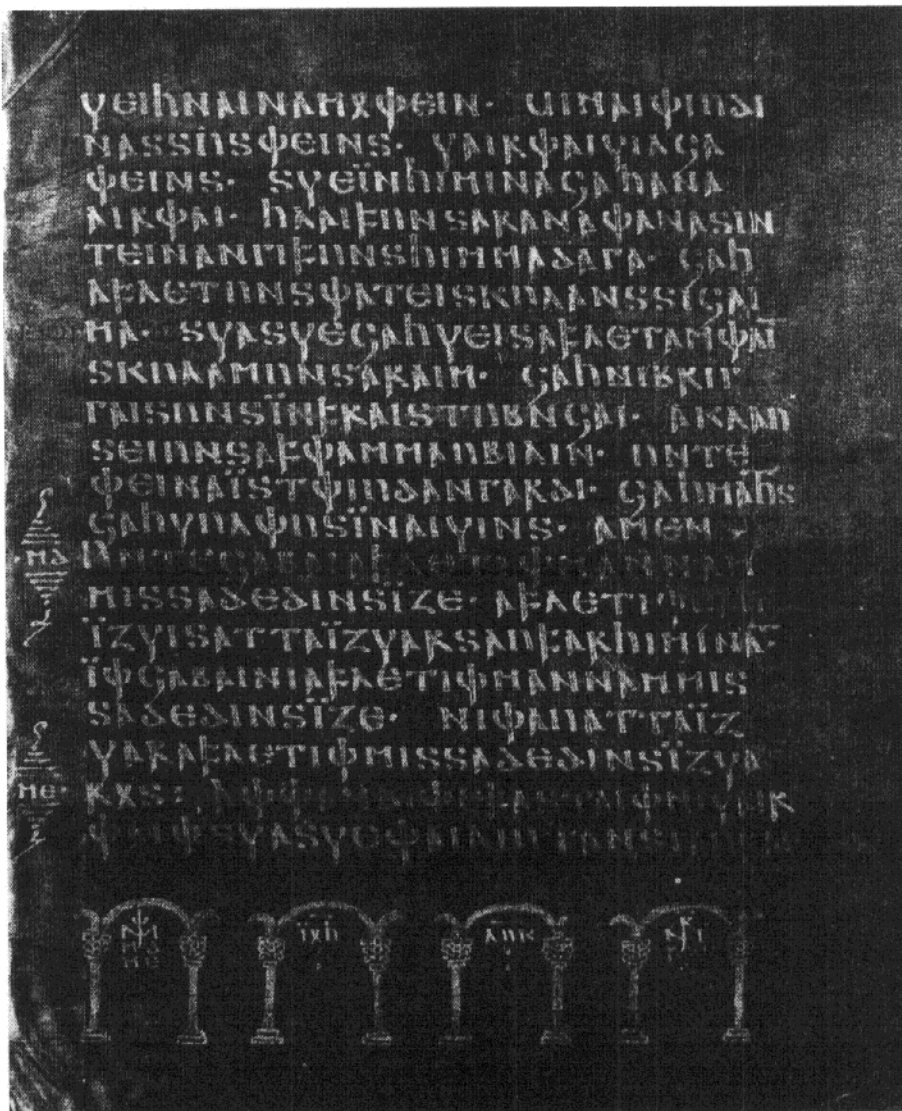 𐍅𐌴𐌹𐌷𐌽𐌰𐌹𐌽𐌰𐌼𐍉𐌸𐌴𐌹𐌽· 𐌵𐌹𐌼𐌰𐌹𐌸𐌹𐌿𐌳𐌹
𐌽𐌰𐍃𐍃𐌿𐍃𐌸𐌴𐌹𐌽𐍃· 𐍅𐌰𐌹𐍂𐌸𐌰𐌹𐍅𐌹𐌻𐌾𐌰
𐌸𐌴𐌹𐌽𐍃· 𐍃𐍅𐌴𐌹̈𐌽𐌷𐌹𐌼𐌹𐌽𐌰𐌾𐌰𐌷𐌰𐌽𐌰
𐌰𐌹𐍂𐌸𐌰𐌹· 𐌷𐌻𐌰𐌹𐍆𐌿𐌽𐍃𐌰𐍂𐌰𐌽𐌰𐌸𐌰𐌽𐌰𐍃𐌹𐌽
𐍄𐌴𐌹𐌽𐌰𐌽𐌲𐌹𐍆𐌿𐌽𐍃𐌷𐌹𐌼𐌼𐌰𐌳𐌰𐌲𐌰· 𐌾𐌰𐌷
𐌰𐍆𐌻𐌴𐍄𐌿𐌽𐍃𐌸𐌰𐍄𐌴𐌹𐍃𐌺𐌿𐌻𐌰𐌽𐍃𐍃𐌹𐌾𐌰𐌹
𐌼𐌰· 𐍃𐍅𐌰𐍃𐍅𐌴𐌾𐌰𐌷𐍅𐌴𐌹𐍃𐌰𐍆𐌻𐌴𐍄𐌰𐌼𐌸𐌰𐌹
𐍃𐌺𐌿𐌻𐌰𐌼𐌿𐌽𐍃𐌰𐍂𐌰𐌹𐌼· 𐌾𐌰𐌷𐌽𐌹𐌱𐍂𐌹𐌲
𐌲𐌰𐌹𐍃𐌿𐌽𐍃𐌹̈𐌽𐍆𐍂𐌰𐌹𐍃𐍄𐌿𐌱𐌽𐌾𐌰𐌹· 𐌰𐌺𐌻𐌰𐌿
𐍃𐌴𐌹𐌿𐌽𐍃𐌰𐍆𐌸𐌰𐌼𐌼𐌰𐌿𐌱𐌹𐌻𐌹𐌽· 𐌿𐌽𐍄𐌴
𐌸𐌴𐌹𐌽𐌰𐌹̈𐍃𐍄𐌸𐌹𐌿𐌳𐌰𐌽𐌲𐌰𐍂𐌳𐌹· 𐌾𐌰𐌷𐌼𐌰𐌷𐍄𐍃
𐌾𐌰𐌷𐍅𐌿𐌻𐌸𐌿𐍃𐌹̈𐌽𐌰𐌹𐍅𐌹𐌽𐍃· 𐌰𐌼𐌴𐌽·
·𐌼𐌳· 𐌿𐌽𐍄𐌴𐌾𐌰𐌱𐌰𐌹𐌰𐍆𐌻𐌴𐍄𐌹𐌸𐌼𐌰𐌽𐌽𐌰𐌼
𐌼𐌹𐍃𐍃𐌰𐌳𐌴𐌳𐌹𐌽𐍃𐌹̈𐌶𐌴· 𐌰𐍆𐌻𐌴𐍄𐌹𐌸
𐌹̈𐌶𐍅𐌹𐍃𐌰𐍄𐍄𐌰𐌹̈𐌶𐍅𐌰𐍂𐍃𐌰𐌿𐍆𐌰𐍂𐌷𐌹𐌼𐌹𐌽𐌰̅·
𐌹̈𐌸𐌾𐌰𐌱𐌰𐌹𐌽𐌹𐌰𐍆𐌻𐌴𐍄𐌹𐌸𐌼𐌰𐌽𐌽𐌰𐌼𐌼𐌹𐍃
𐍃𐌰𐌳𐌴𐌳𐌹𐌽𐍃𐌹̈𐌶𐌴· 𐌽𐌹𐌸𐌰𐌿𐌰𐍄𐍄𐌰𐌹̈𐌶
𐍅𐌰𐍂𐌰𐍆𐌻𐌴𐍄𐌹𐌸𐌼𐌹𐍃𐍃𐌰𐌳𐌴𐌳𐌹𐌽𐍃𐌹̈𐌶𐍅𐌰
·𐌼𐌴· 𐍂𐍉𐍃: 𐌰𐌸𐌸𐌰𐌽𐌱𐌹𐌸𐌴𐍆𐌰𐍃𐍄𐌰𐌹𐌸𐌽𐌹𐍅𐌰𐌹𐍂
𐌸𐌰𐌹𐌸𐍃𐍅𐌰𐍃𐍅𐌴𐌸𐌰𐌹𐌻𐌹𐌿𐍄𐌰𐌽𐍃
𐌹̈𐍉𐌷 𐌻𐌿𐌺